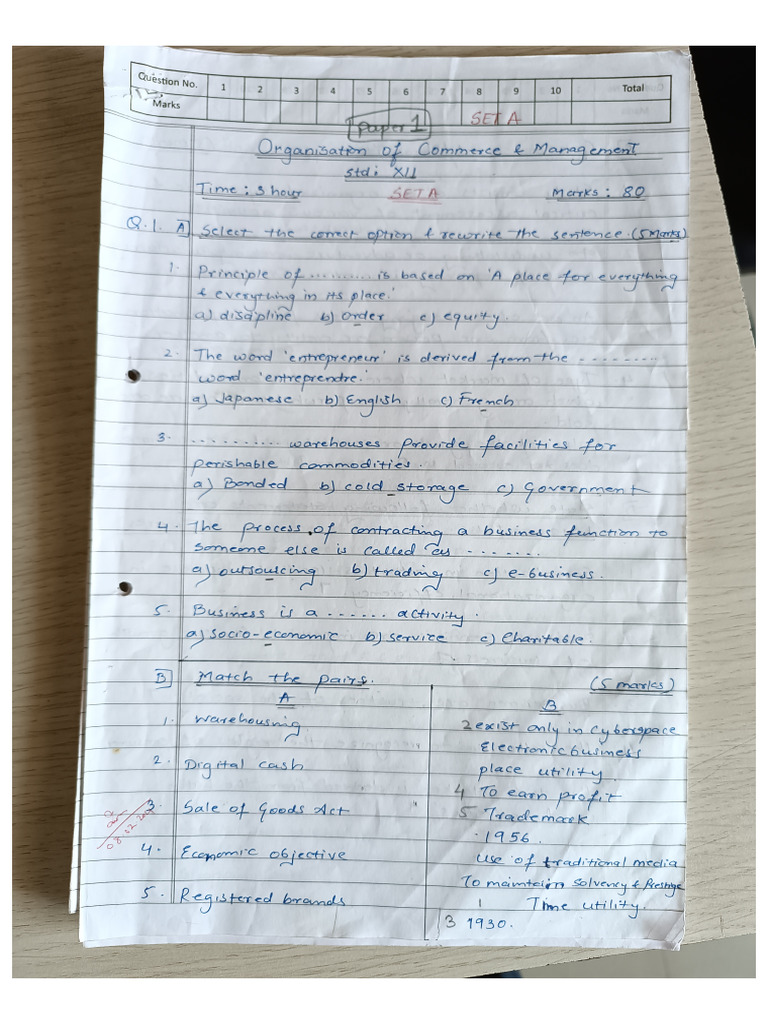 Question No. 1 2 3 4 5 6 7 8 9 10 Total
Marks
Paper 1 SET A
Organisation of Commerce & Management
std: XII
Time: 3 hour SET A Marks: 80
Q.1. A] Select the correct option & rewrite the sentence. (5 Marks)
1. Principle of .......... is based on 'A place for everything
& everything in its place.'
a) discipline b) order c) equity.
2. The word 'entrepreneur' is derived from the .........
word 'entreprendre.'
a) Japanese b) English c) French
3. .......... warehouses provide facilities for
perishable commodities.
a) Bonded b) cold storage c) Government
4. The process of contracting a business function to
someone else is called as ........
a) outsourcing b) trading c) e-business.
5. Business is a ...... activity.
a) socio-economic b) service c) Charitable.
B] Match the pairs. (5 marks)
A
1. Warehousing
2. Digital cash
3. Sale of Goods Act
4. Economic objective
5. Registered brands
B
2 exist only in cyberspace
Electronic business
place utility.
4 To earn profit
5 Trademark
1956.
Use of traditional media
To maintain solvency & Prestige
1 Time utility.
3 1930.